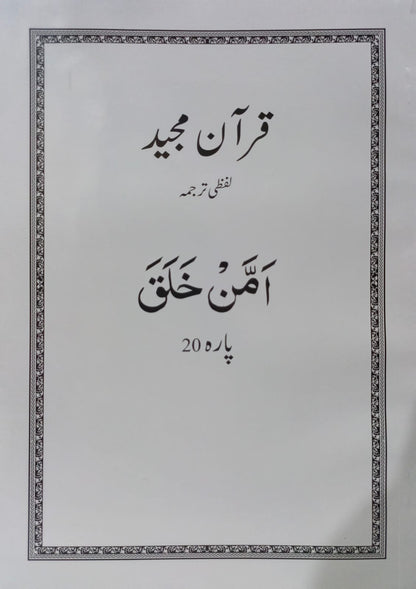 قرآن مجید
لفظی ترجمہ
اَمَّنْ خَلَقَ
پارہ 20